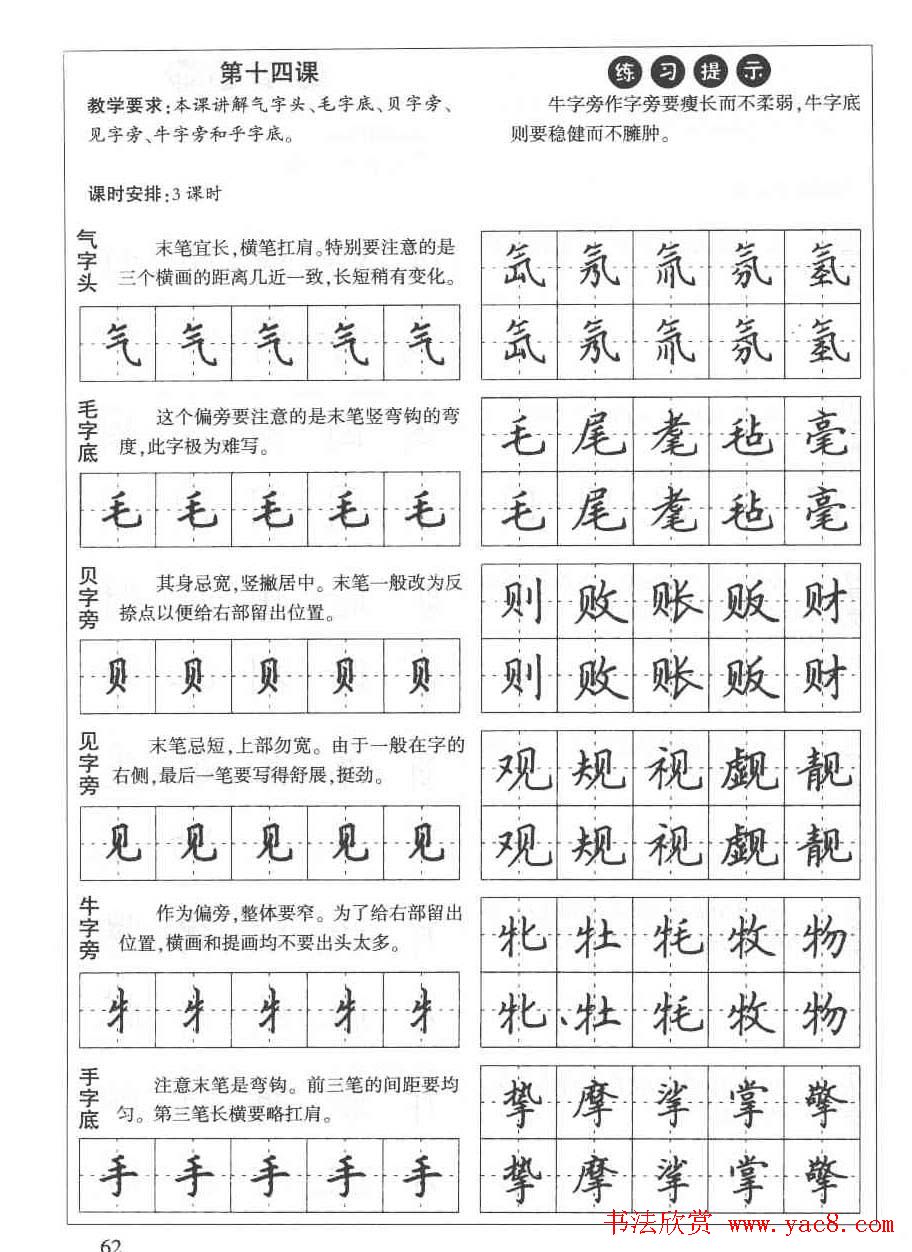 第十四课
教学要求:本课讲解气字头、毛字底、贝字旁、
见字旁、牛字旁和乎字底。
课时安排:3课时
练习提示
牛字旁作字旁要瘦长而不柔弱,牛字底
则要稳健而不臃肿。
气字头
末笔宜长,横笔扛肩。特别要注意的是
三个横画的距离几近一致,长短稍有变化。
气气气气气
氙氖氚氛氢
氙氖氚氛氢
毛字底
这个偏旁要注意的是末笔竖弯钩的弯
度,此字极为难写。
毛毛毛毛毛
毛尾耄毡毫
毛尾耄毡毫
贝字旁
其身忌宽,竖撇居中。末笔一般改为反
捺点以便给右部留出位置。
贝贝贝贝贝
则败账贩财
则败账贩财
见字旁
末笔忌短,上部勿宽。由于一般在字的
右侧,最后一笔要写得舒展,挺劲。
见见见见见
观规视觑靓
观规视觑靓
牛字旁
作为偏旁,整体要窄。为了给右部留出
位置,横画和提画均不要出头太多。
牜牜牜牜牜
牝牡牦牧物
牝牡牦牧物
手字底
注意末笔是弯钩。前三笔的间距要均
匀。第三笔长横要略扛肩。
手手手手手
挚摩挲掌擎
挚摩挲掌擎
书法欣赏 www.yac8.com
62